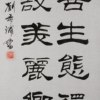 善生態環
設美麗鄉